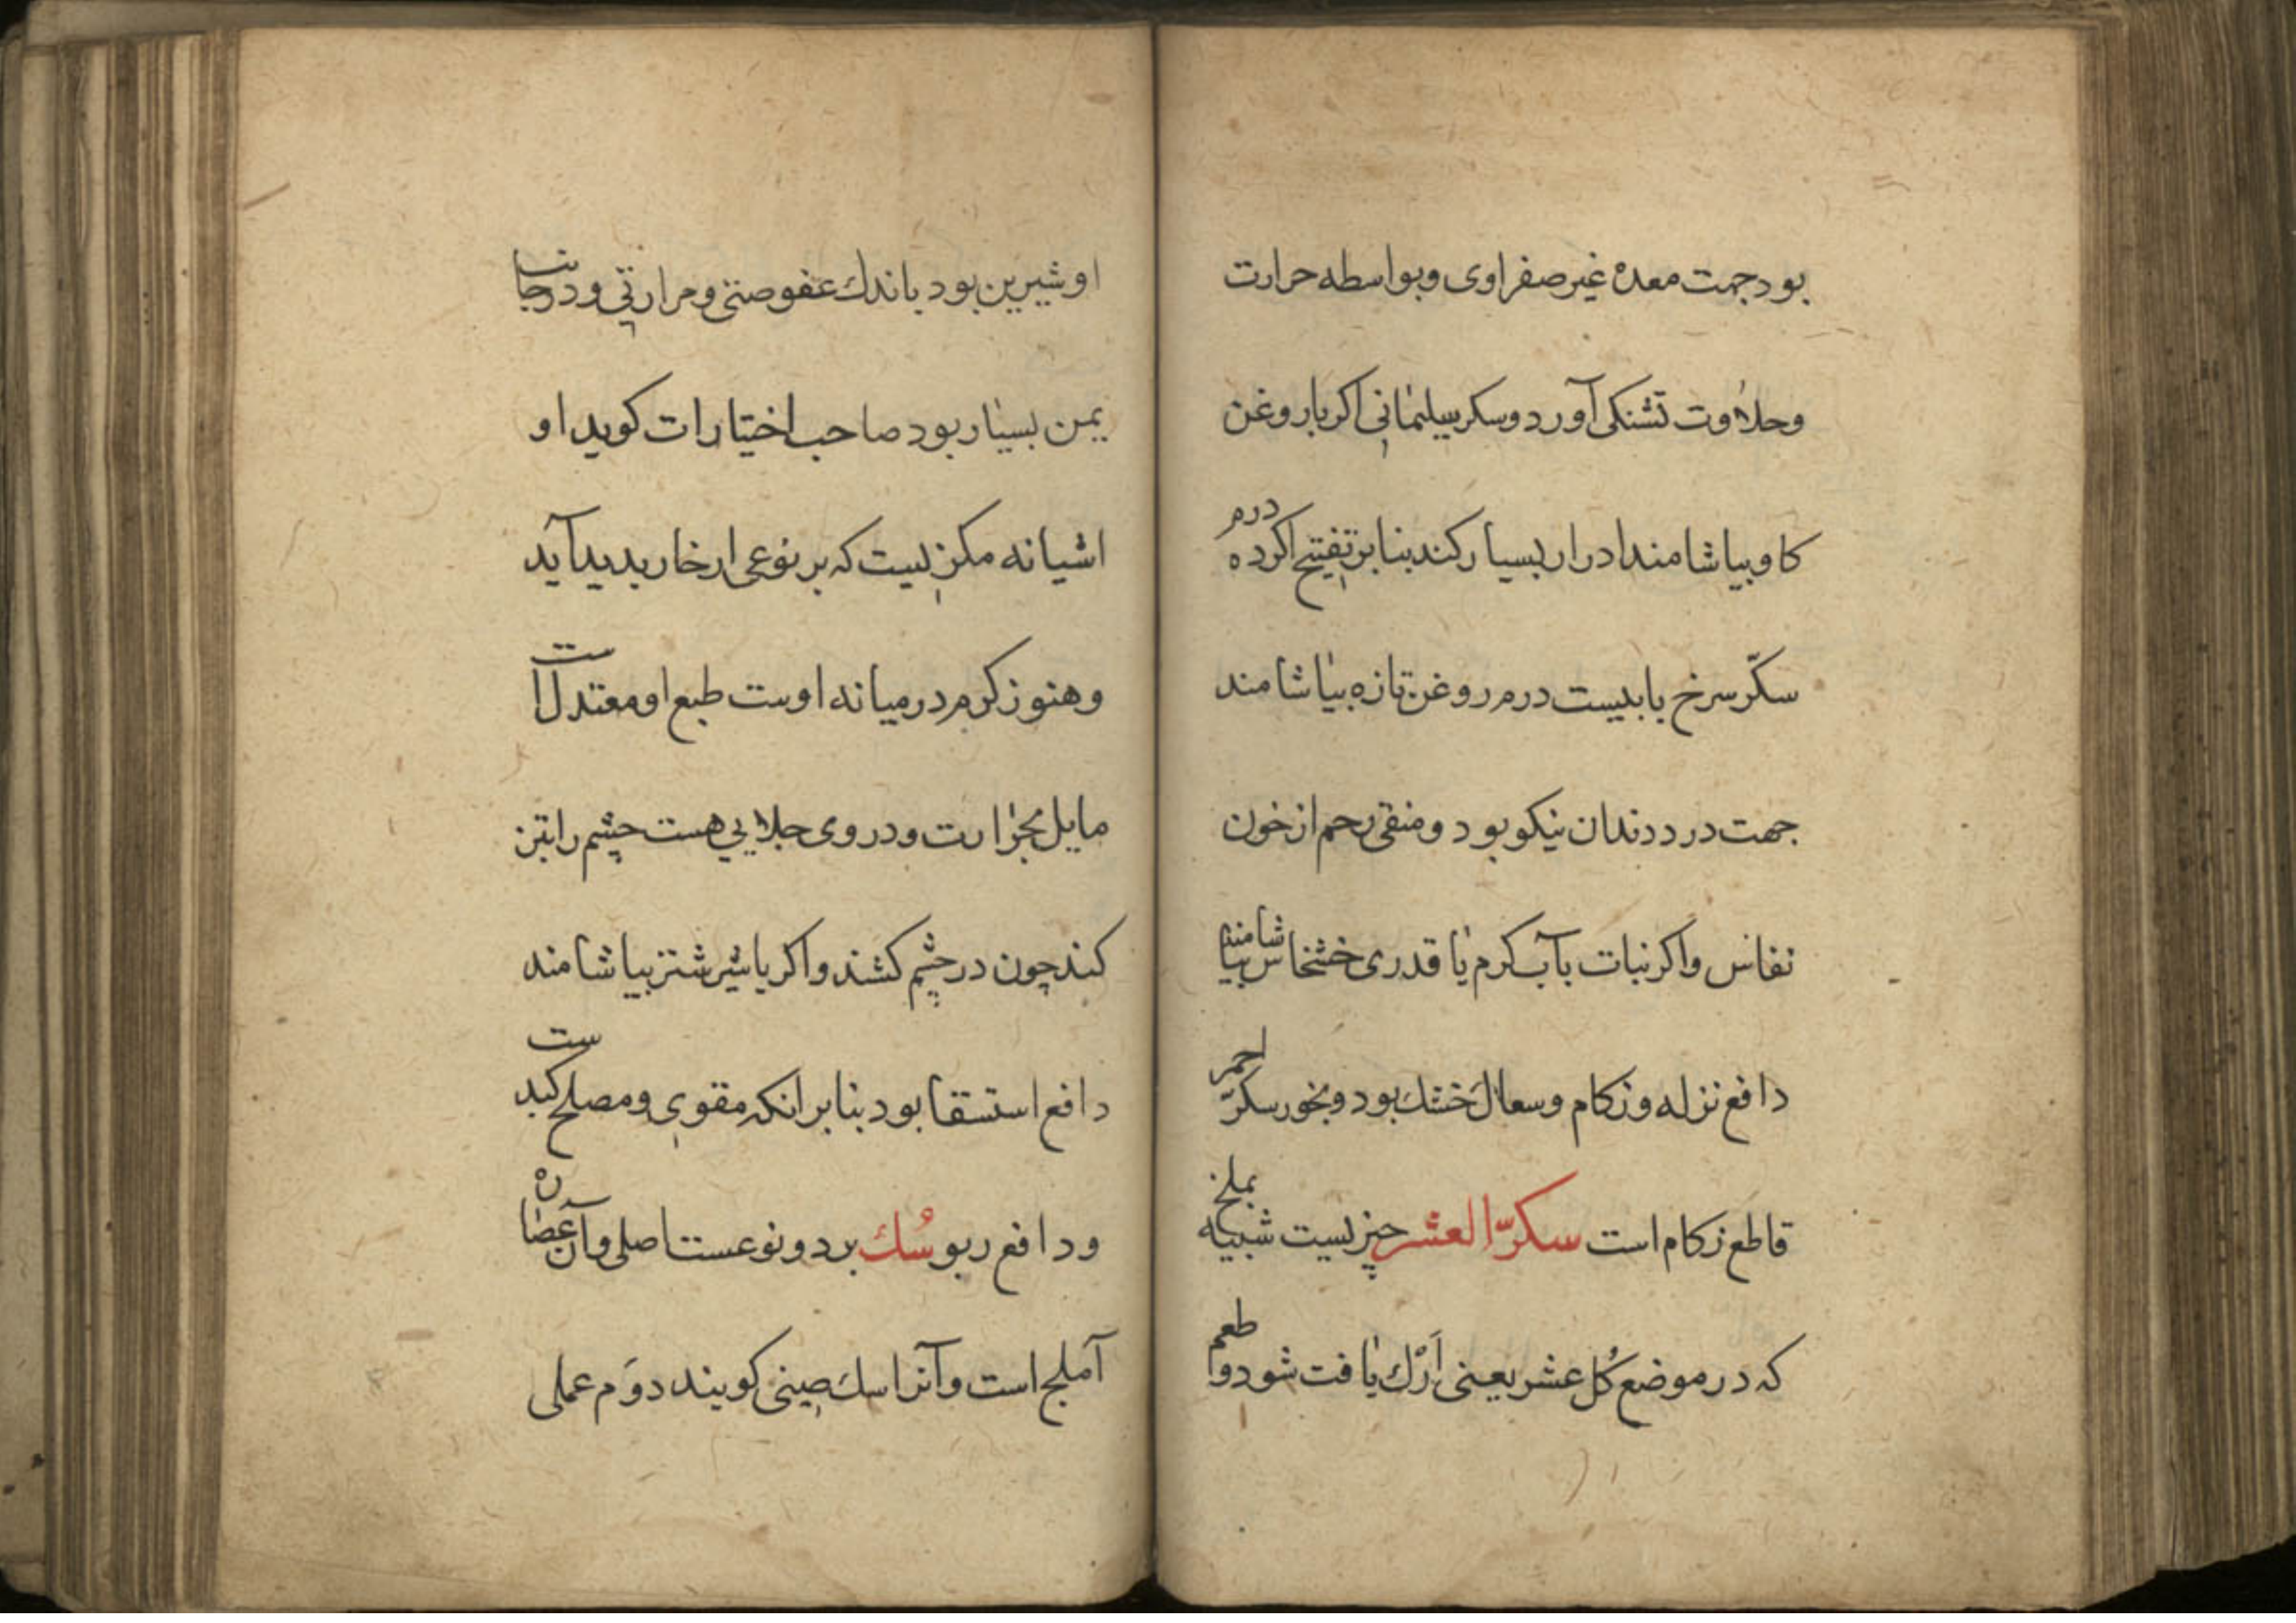 بود جهت معده غیر صفراوی و بواسطه حرارت
و حلاوت تشنکی آورد و سکر سلیمانی اکر با روغن
کاو بیاشامند ادرار بسیار کند بنا بر تفتیح اکر ده درم
سکّر سرخ با بیست درم روغن تازه بیاشامند
جهت درد دندان نیکو بود و منقی رحم از خون
نفاس و اکر نبات بآب کرم یا قدری خشخاش بیاشامند
دافع نزله و زکام و سعال خشك بود و بخور سکرّ احمر
قاطع زکام است سکرّ العشر چیزیست شبیه بملح
که در موضع کُل عشر یعنی اَرْك یافت شود و طعم
او شیرین بود باندك عفوصتی و مرارتی و در جبال
یمن بسیار بود صاحب اختیارات کوید او
اشیانه مکزیست که بر نوعی از خار بدید آید
و هنوز کرم در میانه اوست طبع او معتدل است
مایل بحرارت و در وی جلایی هست چشم را تیز
کند چون در چشم کشند و اکر با شیر شتر بیاشامند
دافع استسقا بود بنا بر انکه مقوی و مصلح کبد ست
و دافع ربو سُك بر دو نوعست اصلی و آن عصاره
آملج است و آنرا سك صینی کویند دوَم عملی